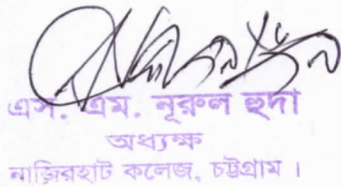 এস. এম. নূরুল হুদা
অধ্যক্ষ
নাজিরহাট কলেজ, চট্টগ্রাম ।